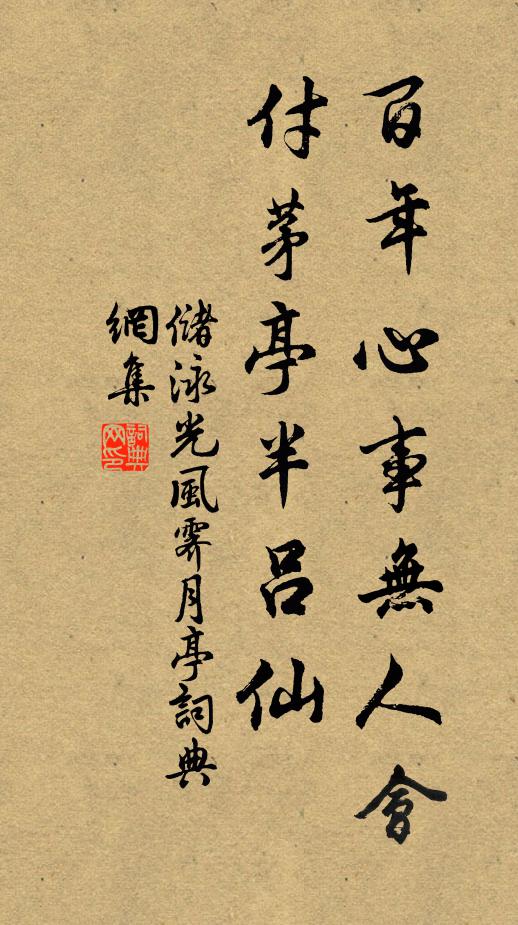 百年心事無人會
付茅亭半呂仙
儲泳光風霽月亭詞典
網集
詞典網印